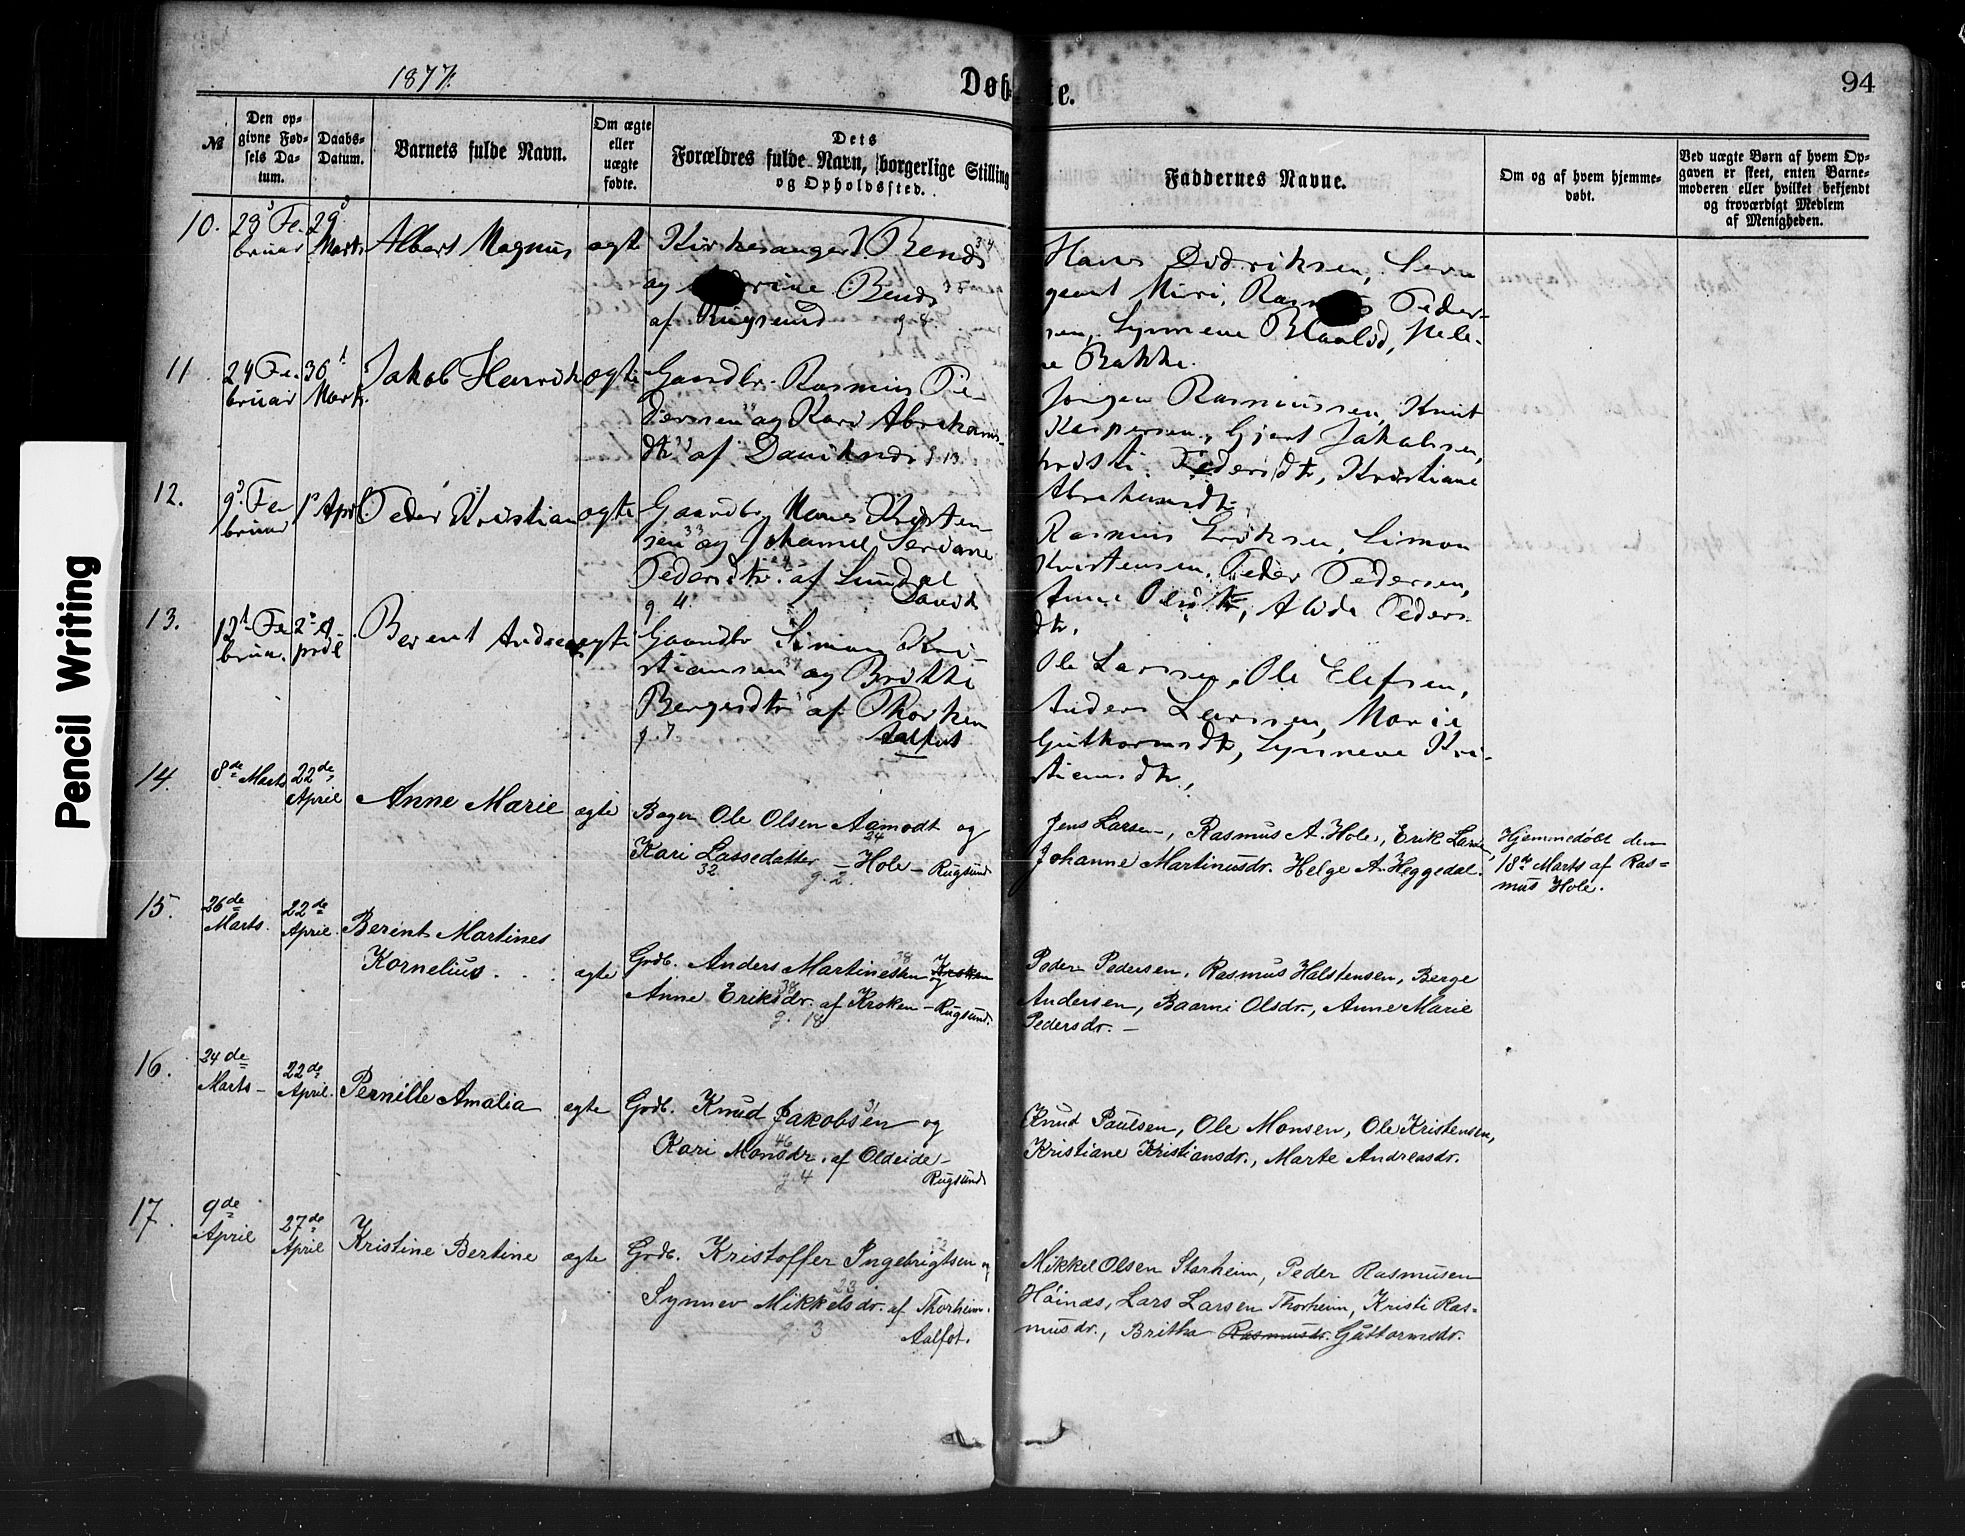 Pencil Writing
1877.
Døbte.
94
№
Den opgivne Fødsels Datum.
Daabs-Datum.
Barnets fulde Navn.
Om ægte eller uægte fødte.
Dets
Forældres fulde Navn, borgerlige Stilling
og Opholdssted.
Faddernes Navne.
Om og af hvem hjemmedøbt.
Ved uægte Børn af hvem Opgaven er skeet, enten Barnemoderen eller hvilket bekjendt og troværdigt Medlem af Menigheden.
10.
Februar
29
Marts
Albert Magnus
ægte
Kirkesanger Bends 34
og Bends
af Rugsund
Hans Didriksen, Ser-
geant Rasmus Peder-
sen, Synneve
Bakke.
11
24 Fe-
bruar
Marts.
Jakob Henrik
ægte
Gaardbr. Rasmus Pe-
dersen og Kari Abrahams-
dtr. af Davik
g. 13
Jørgen Rasmussen, Knut
Kaspersen, Gjert Jakobsen,
Kristi Pedersdtr, Kristiane
Abrahamsdtr.
12.
9 Fe-
bruar
1 April
Peder Kristian
ægte
Gaardbr. Hans Kristen-
sen 33 og Johanne
Pedersdtr. af Lundal
g. 4.
Davik
Rasmus Eriksen, Simon
Kristensen, Peder Pedersen,
Anne Olsdtr, Alida Peders-
dtr.
13.
12 Fe-
bruar.
2 A-
pril
Berent Andreas
ægte
Gaardbr Simon Kri-
stiansen og Britthe
Bergesdtr af
g. 7
Aalfot
Ole Larsen, Ole Elefsen,
Anders Larssen, Marie
Guthormsdtr, Synneve Kri-
stiansdtr.,
14.
8de Marts
22de
April
Anne Marie
ægte
Bager Ole Olsen Aamodt og
24
Kari Lassedatter – Hole – Rugsund
32
g. 2.
Jens Larsen, Rasmus A. Hole, Erik Larsen,
Johanne Martinusdr. Helge A. Heggedal.
Hjemmedøbt den
18de Marts af Ras=
mus Hole.
15.
26de
Marts.
22de
April.
Berent Martines
Kornelius.
ægte
Grdb. Anders Martinessen Kroken og
38
Anne Eriksdr. af Kroken – Rugsund.
38
g. 18
Peder Pedersen, Rasmus Halstensen, Berge
Andersen, Baarni Olsdr., Anne Marie
Pedersdr. –
16.
24de
Marts –
22de
April.
Pernille Amalia
ægte
Grdb. Knud Jakobsen og
31
Kari Monsdr. af Oldeide –
46
g. 4
Rugsund
Knud Paulsen, Ole Monsen, Ole Kristensen,
Kristiane Kristiansdr., Marte Andreasdr.
17.
9de
April
27de
April
Kristine Bertine
ægte
Grdb. Kristoffer Ingebrigtsen og
Synnev Mikkelsdr. af Thorheim.
23
g. 3
Aalfot.
Mikkel Olsen Starheim, Peder Rasmusen
Høinæs, Lars Larsen Thorheim, Kristi Ras=
musdr., Britha Rasmusdr. Guttormsdr.